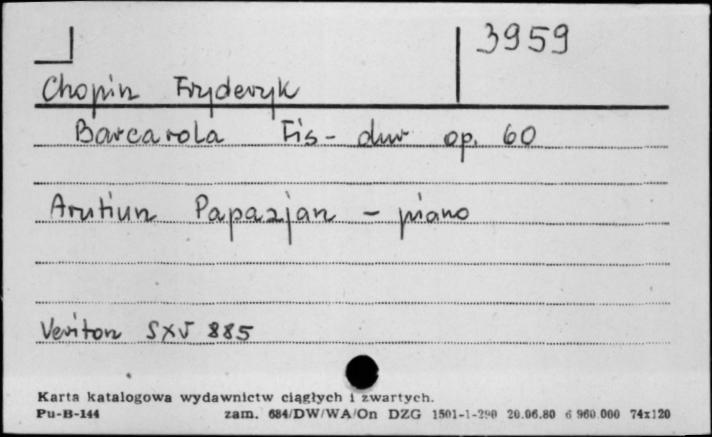 3959
Chopin Fryderyk
Barcarola Fis-dur op. 60
Arutiun Papazjan - piano
Veriton SXV 885
Karta katalogowa wydawnictw ciągłych i zwartych.
Pu-B-144 zam. 684/DW/WA/On DZG 1501-1-290 20.06.80 6 960.000 74x120